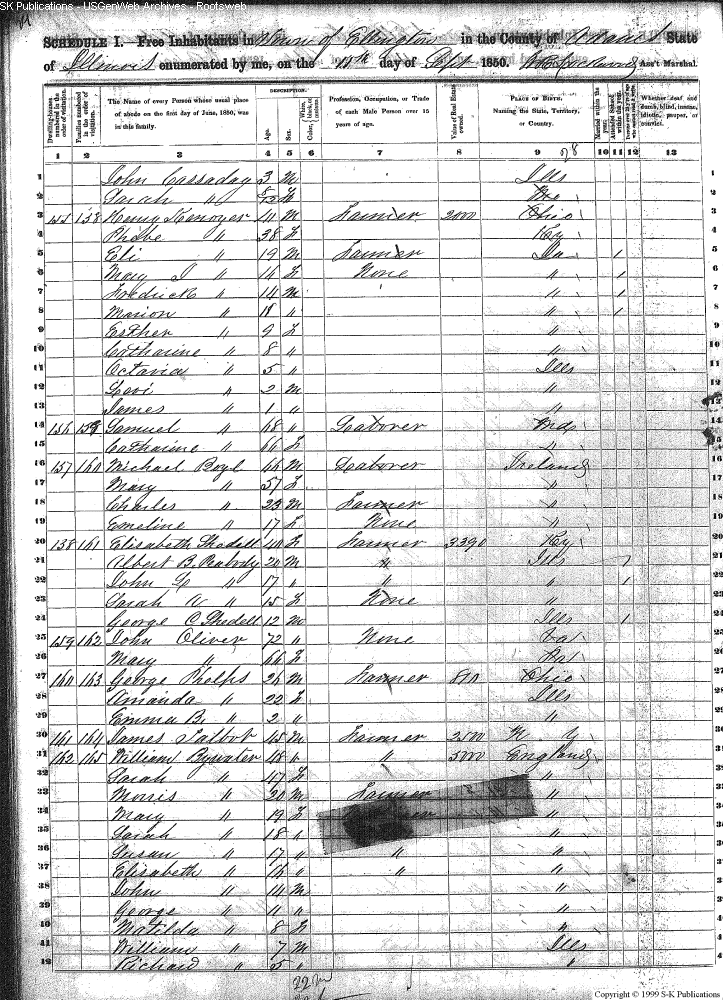 SK Publications - USGenWeb Archives - Rootsweb
SCHEDULE I. Free Inhabitants in Town of Ellington in the County of Adams State
of Illinois enumerated by me, on the 11th day of Sept 1850. Ass't Marshal.
DESCRIPTION.
Dwelling-houses numbered in the order of visitation. Families numbered in the order of visitation. The Name of every Person whose usual place of abode on the first day of June, 1850, was in this family. Age. Sex. White, black, or mulatto. Color Profession, Occupation, or Trade of each Male Person over 15 years of age. Value of Real Estate owned. PLACE OF BIRTH. Naming the State, Territory, or Country. Married within the year. Attended School within the year. Whether deaf and dumb, blind, insane, idiotic, pauper, or convict.
1 2 3 4 5 6 7 8 9 10 11 12 13
1 John Cassaday 3 M Ills 1
2 Sarah " F 2
3 138 Henry Kenoyer M Farmer 2000 Ohio 3
4 Phebe " 38 F Ky 4
5 Eli " 19 M Farmer 1 5
6 Mary J " 16 F None " 1 6
7 Fredrick " 14 M " 1 7
8 Marion " " " 1 8
9 Esther " 9 F " 9
10 Catharine " 8 " " 10
11 Octavia " 5 " Ills 11
12 Levi " 2 M " 12
13 James " 1 " " 13
14 156 159 Samuel " 68 " Laborer 14
15 Catharine " 66 F " 15
16 157 160 Michael Boyl 66 M Laborer Ireland 16
17 Mary " 57 F " 17
18 Charles " 23 M Farmer " 18
19 Emeline " 17 F None " 19
20 138 161 Elisabeth Shedell 40 F Farmer 3390 Ky 20
21 Albert B. Peabody 20 M " Ills 1 21
22 John " 17 " " " 1 22
23 Sarah " 15 F None " 23
24 George C Shedell 12 M Ills 1 24
25 159 162 John Oliver 72 " None Va 25
26 Mary " 66 F 26
27 160 163 George Phelps 26 M Farmer Ohio 27
28 Amanda " 22 F Ills 28
29 Emma B. " 2 " " 29
30 161 164 James Talbot 45 M Farmer 2500 N Y 30
31 162 165 William Bywater 48 " " 5000 England 31
32 Sarah " 47 F " 32
33 Morris " 20 M Farmer " 33
34 Mary " 19 F " 34
35 Sarah " 18 " " 35
36 Susan " 17 " " " 36
37 Elisabeth " 16 " " " 37
38 John " 14 M " 38
39 George " 11 " "
40 Matilda " 8 F "
41 William " 7 M Ills
42 Richard " 5 " "
Copyright © 1999 S-K Publications